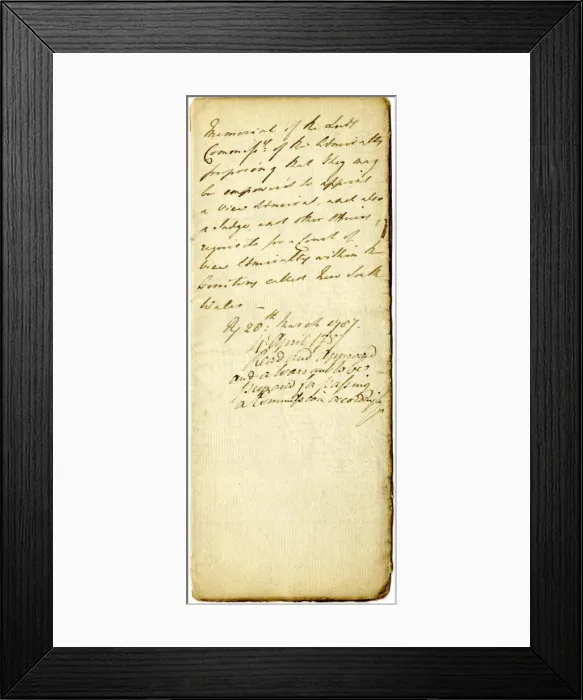 Memorial of the Lords
Commiss.rs of the Admiralty
proposing that they may
be empowered to appoint
a Vice Admiral, and also
a Judge, and other Officers,
requisite for a Court of
Vice Admiralty within the
territory called New South
Wales —
R/ 28.th March 1787.
April 1787
Read and Approved
and a Warrant to be
prepared for passing
a Commission accordingly